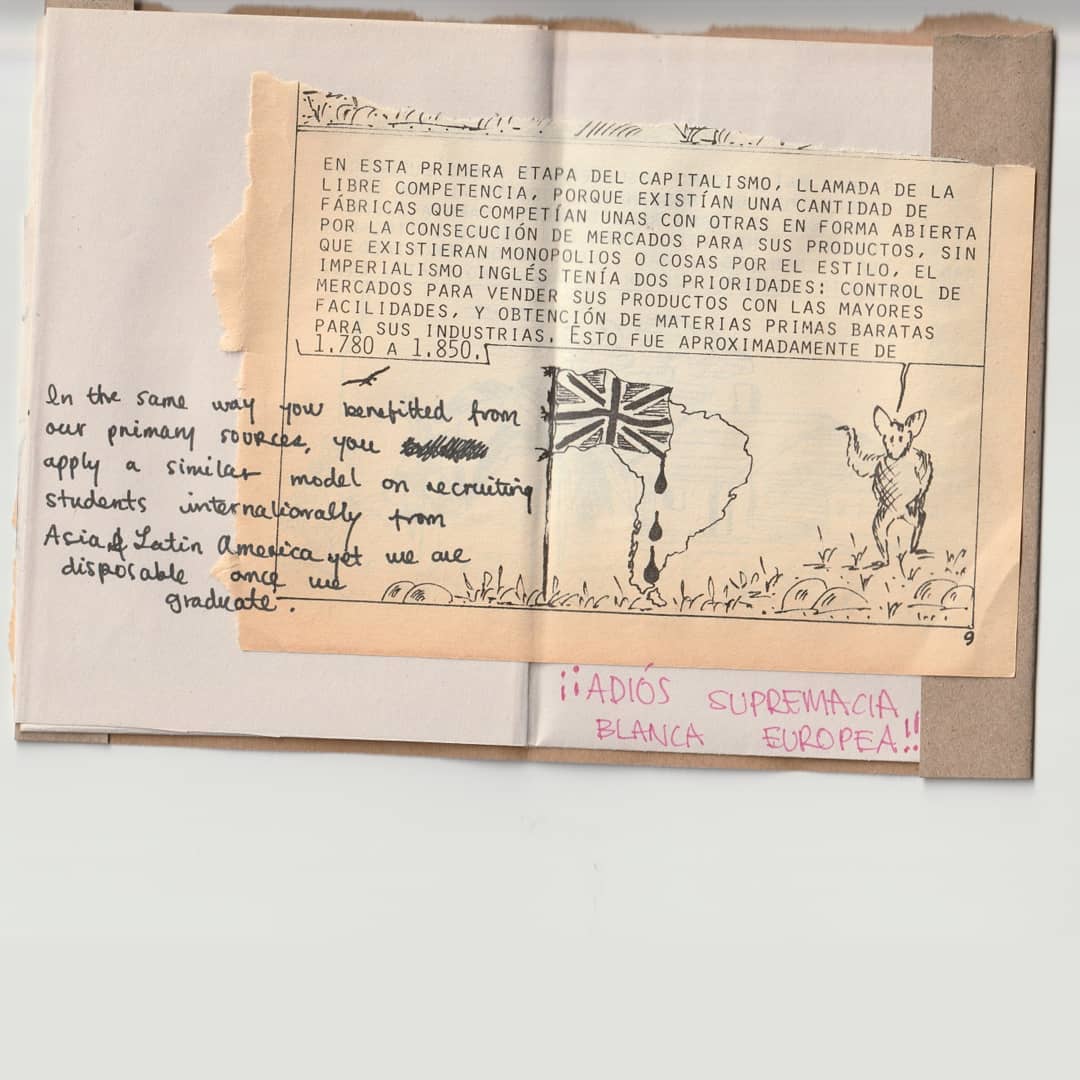 EN ESTA PRIMERA ETAPA DEL CAPITALISMO, LLAMADA DE LA
LIBRE COMPETENCIA, PORQUE EXISTÍAN UNA CANTIDAD DE
FÁBRICAS QUE COMPETÍAN UNAS CON OTRAS EN FORMA ABIERTA
POR LA CONSECUCIÓN DE MERCADOS PARA SUS PRODUCTOS, SIN
QUE EXISTIERAN MONOPOLIOS O COSAS POR EL ESTILO, EL
IMPERIALISMO INGLÉS TENÍA DOS PRIORIDADES: CONTROL DE
MERCADOS PARA VENDER SUS PRODUCTOS CON LAS MAYORES
FACILIDADES, Y OBTENCIÓN DE MATERIAS PRIMAS BARATAS
PARA SUS INDUSTRIAS. ESTO FUE APROXIMADAMENTE DE
1.780 A 1.850.
In the same way you benefitted from
our primary sources, you
apply a similar model on recruiting
students internationally from
Asia & Latin America yet we are
disposable once we
graduate.
9
¡¡ADIÓS SUPREMACIA
BLANCA EUROPEA!!